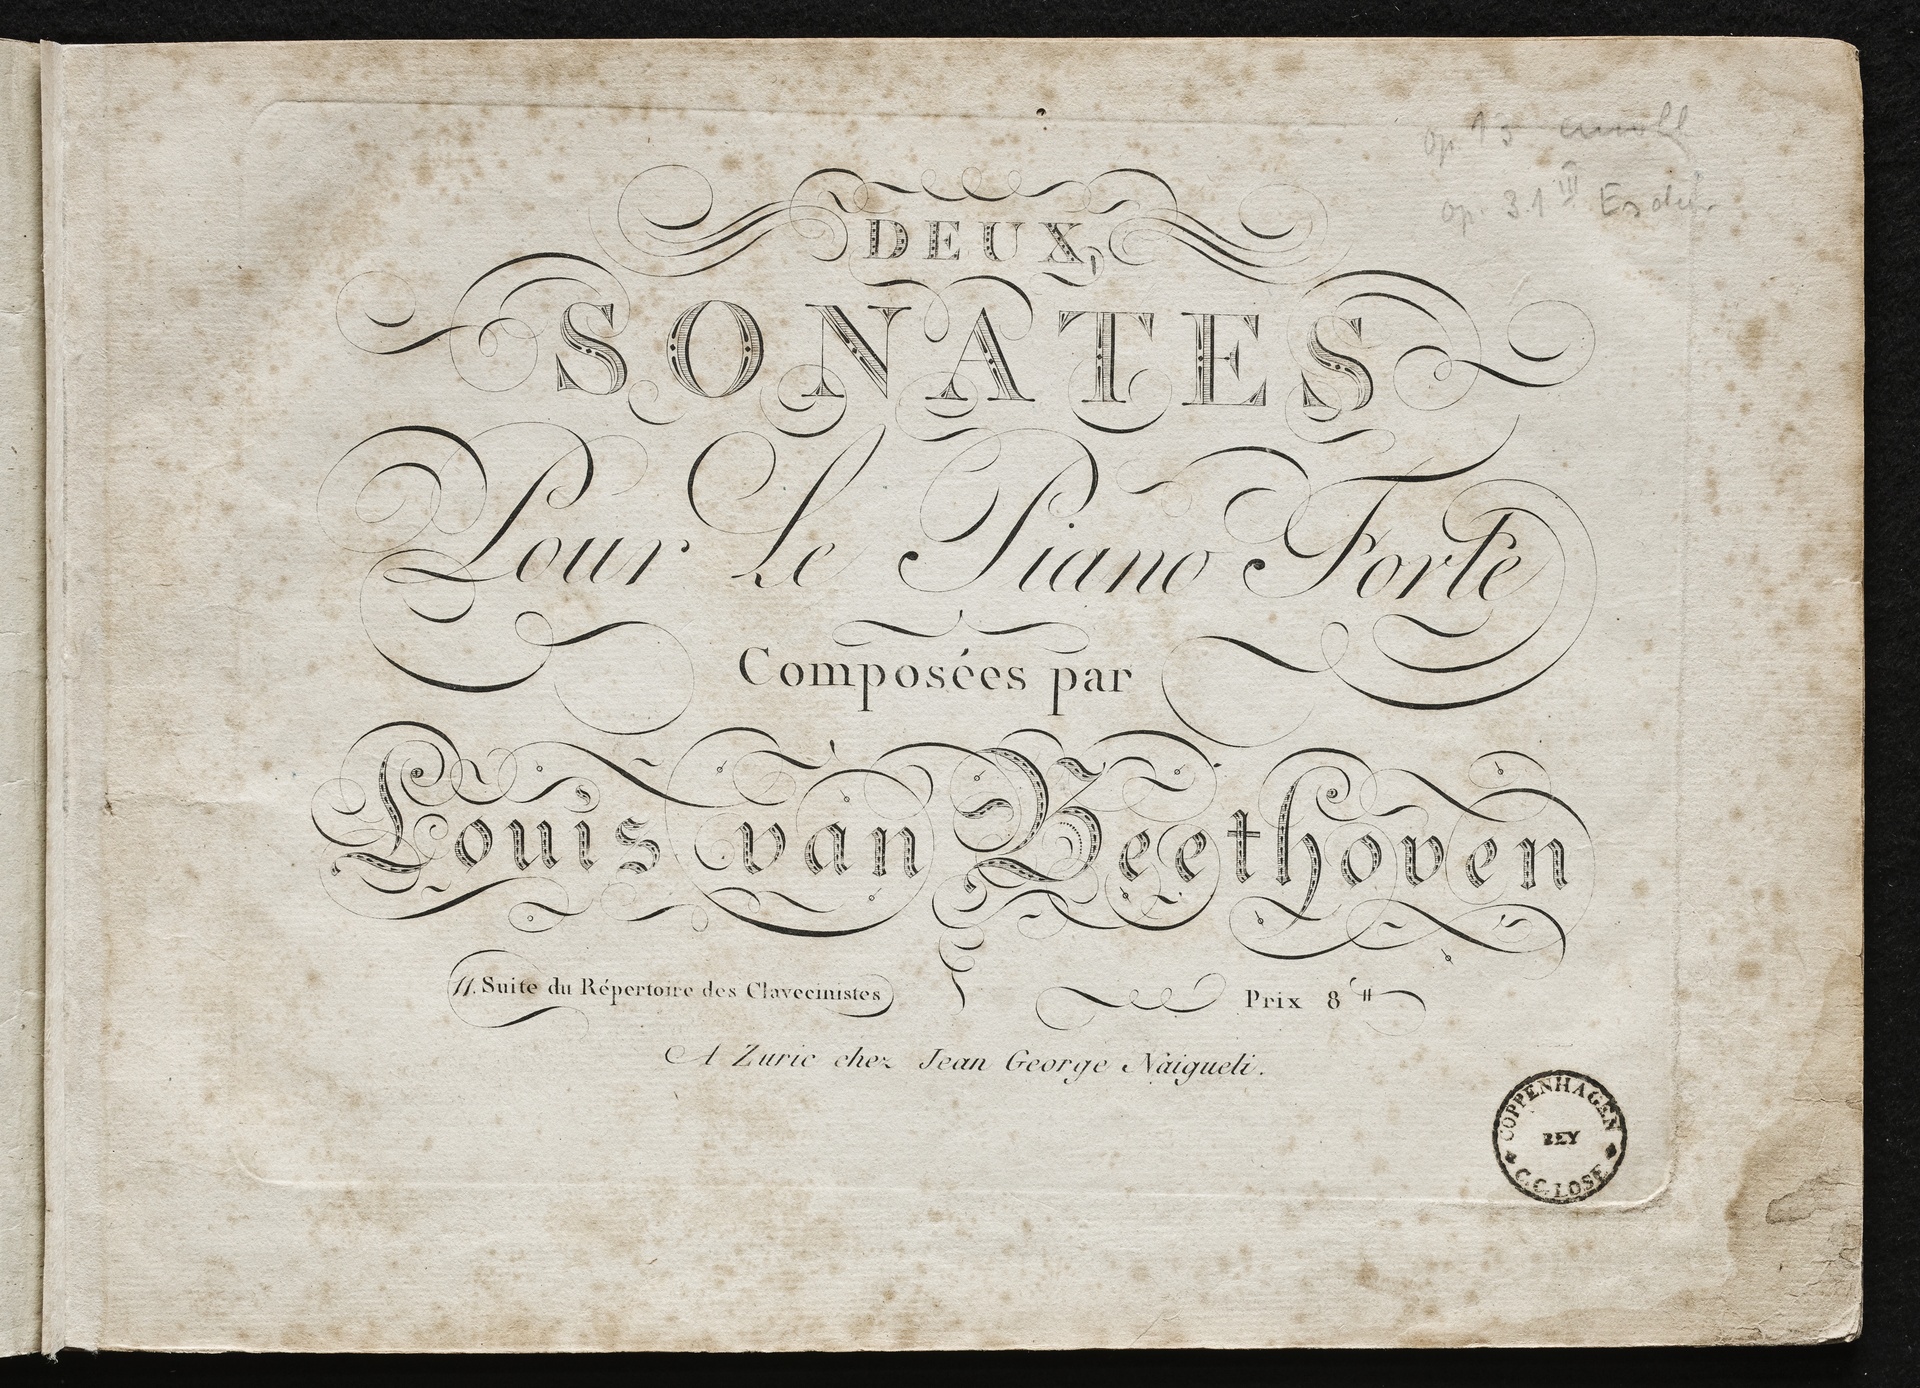 op. 13 cmoll
op. 31 III Esdur
DEUX
SONATES
Pour le Piano Forte
Composées par
Louis van Beethoven
11. Suite du Répertoire des Clavecinistes
Prix 8 ₶
A Zuric chez Jean George Naigueli.
COPPENHAGEN
BEY
C.C. LOSE